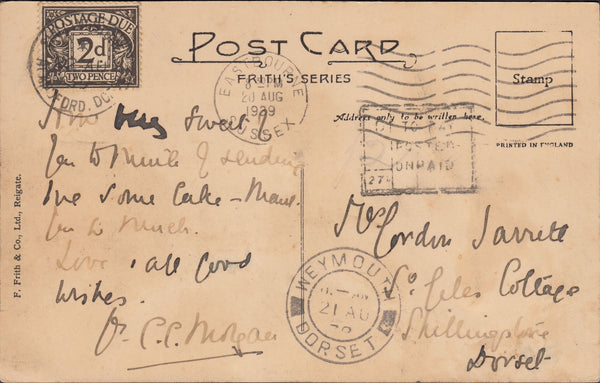 POSTAGE DUE
2d
TWO PENCE
POST CARD
FRITH'S SERIES
EASTBOURNE
20 AUG
1939
SUSSEX
Stamp
Address only to be written here.
PRINTED IN ENGLAND
TO PAY
POSTED
UNPAID
27
F. Frith & Co., Ltd., Reigate.
How very sweet of
you to think of sending
me some Cake – Many
Much.
Love & all good
wishes.
C.C. Morgan
WEYMOUTH
21 AU
DORSET
Mrs Gordon Jarrett
St Giles Cottage
Shillingstone
Dorset